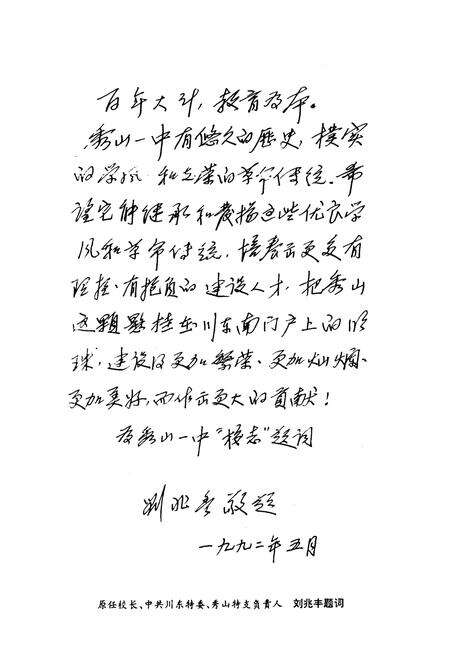 百年大计，教育为本。
秀山一中有悠久的历史，朴实
的学风和光荣的革命传统。希
望它能继承和发扬这些优良学
风和革命传统，培养出更多有
理想、有抱负的建设人才，把秀山
这颗悬挂在川东南门户上的明
珠，建设得更加繁荣、更加灿烂、
更加美好，而作出更大的贡献！
为秀山一中“校志”题词
刘兆丰敬题
一九九二年五月
原任校长、中共川东特委、秀山特支负责人 刘兆丰题词